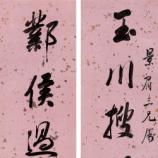 景眉三兄属
玉川搜
鄴侯過